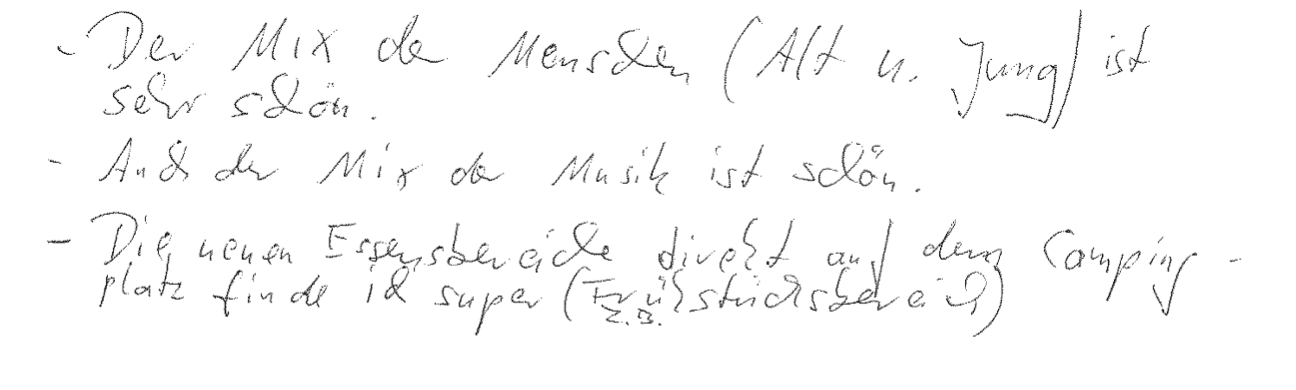 - Der Mix der Menschen (Alt u. Jung) ist
sehr schön.
- Auch der Mix der Musik ist schön.
- Die neuen Essensbereiche direkt auf dem Camping-
platz finde ich super (Frühstücksbereich)
z.B.